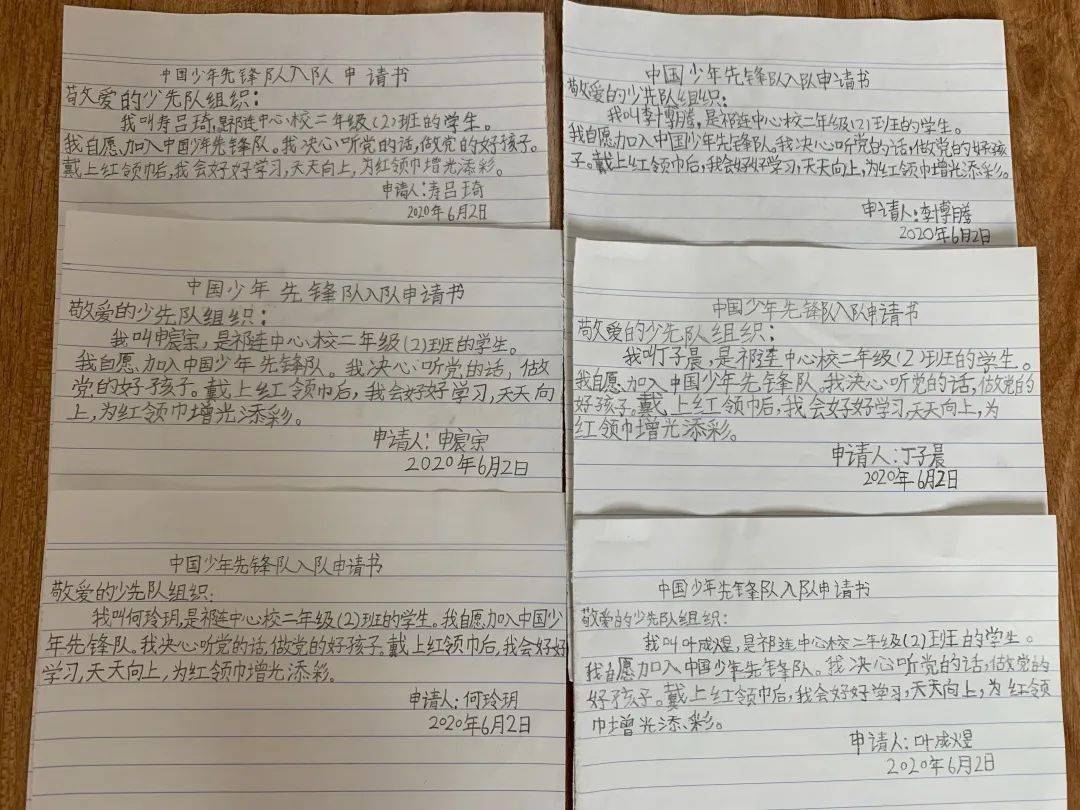 中国少年先锋队入队申请书
敬爱的少先队组织：
我叫寿吕琦,是祁连中心校二年级(2)班的学生。
我自愿加入中国少年先锋队。我决心听党的话,做党的好孩子。
戴上红领巾后,我会好好学习,天天向上,为红领巾增光添彩。
申请人:寿吕琦
2020年6月2日
中国少年先锋队入队申请书
敬爱的少先队组织：
我叫李博腾,是祁连中心校二年级(2)班的学生。
我自愿加入中国少年先锋队。我决心听党的话,做党的好孩
子。戴上红领巾后,我会好好学习,天天向上,为红领巾增光添彩。
申请人:李博腾
2020年6月2日
中国少年先锋队入队申请书
敬爱的少先队组织：
我叫申宸宗,是祁连中心校二年级(2)班的学生。
我自愿加入中国少年先锋队。我决心听党的话,做
党的好孩子。戴上红领巾后,我会好好学习,天天向
上,为红领巾增光添彩。
申请人:申宸宗
2020年6月2日
中国少年先锋队入队申请书
敬爱的少先队组织：
我叫丁子晨,是祁连中心校二年级(2)班的学生。
我自愿加入中国少年先锋队。我决心听党的话,做党的
好孩子。戴上红领巾后,我会好好学习,天天向上,为
红领巾增光添彩。
申请人:丁子晨
2020年6月2日
中国少年先锋队入队申请书
敬爱的少先队组织:
我叫何玲玥,是祁连中心校二年级(2)班的学生。我自愿加入中国少
年先锋队。我决心听党的话,做党的好孩子。戴上红领巾后,我会好好
学习,天天向上,为红领巾增光添彩。
申请人:何玲玥
2020年6月2日
中国少年先锋队入队申请书
敬爱的少先队组织:
我叫叶成煜,是祁连中心校二年级(2)班的学生。
我自愿加入中国少年先锋队。我决心听党的话,做党的
好孩子。戴上红领巾后,我会好好学习,天天向上,为红领
巾增光添彩。
申请人:叶成煜
2020年6月2日